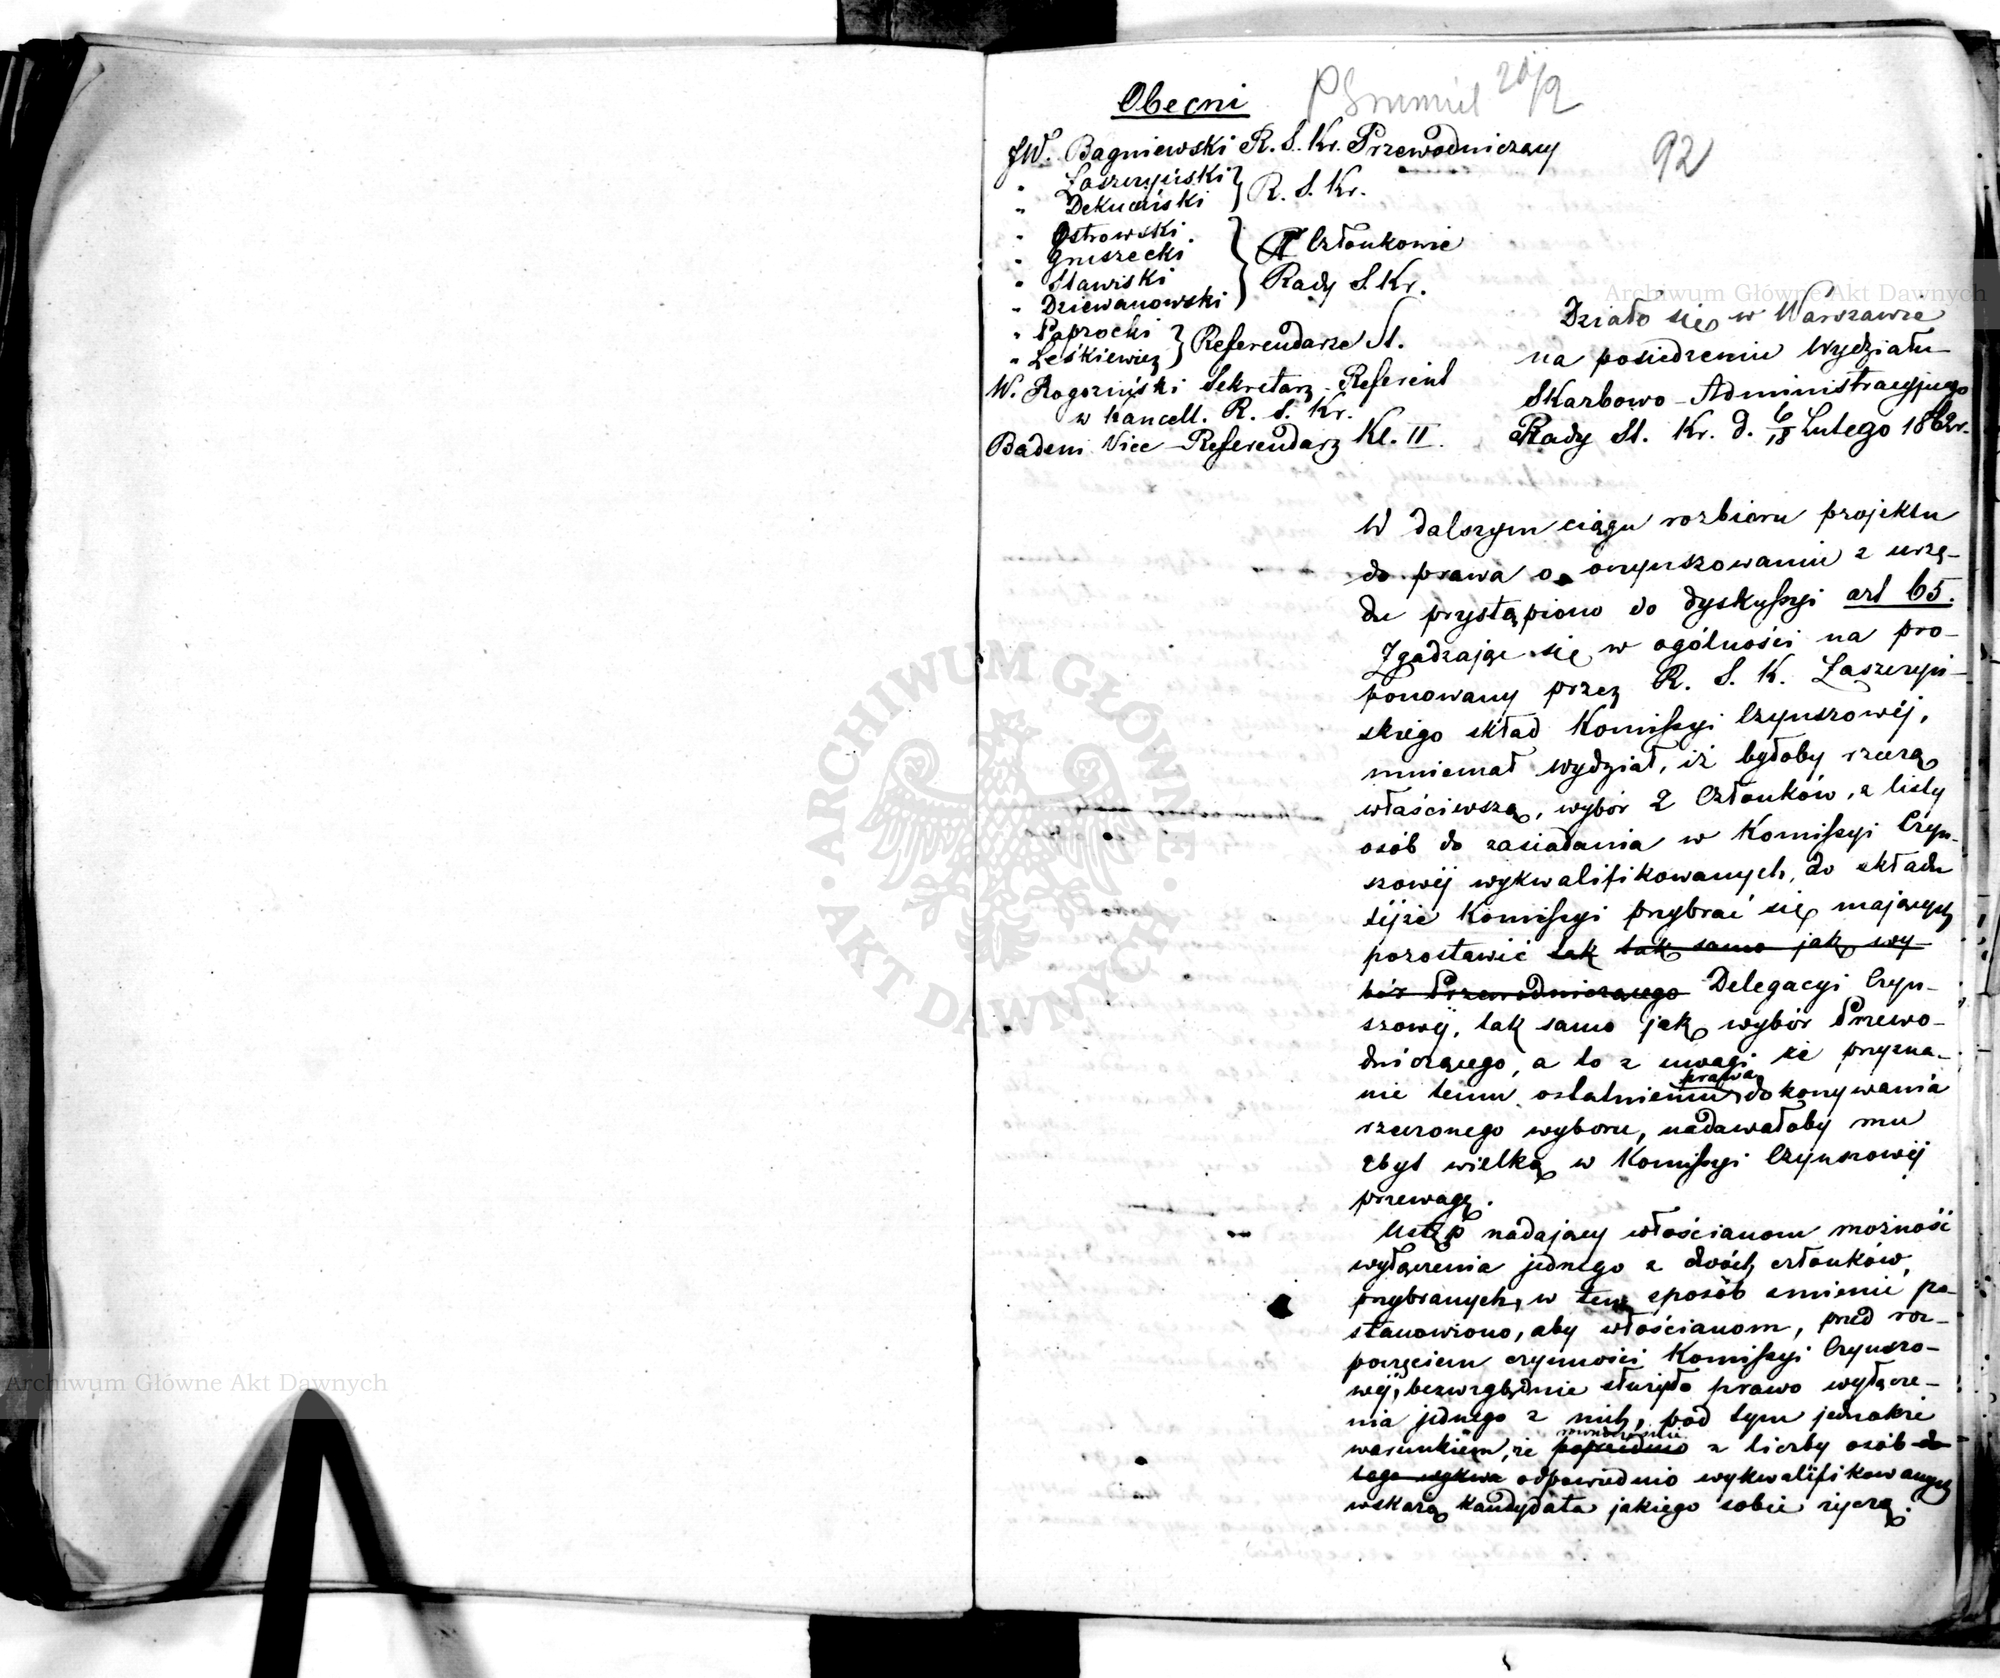 Obecni
20/2
92
JW. Bagniewski R. S. Kr. Przewodniczący
" Łaszczyński } R. S. Kr.
" Dekuciński
" Ostrowski
" Gruszecki } Członkowie
" Stawiski Rady S. Kr.
" Dziewanowski
" Paprocki } Referendarze St.
" Leśkiewicz
W. Rogoziński Sekretarz-Referent
w Kancell. R. S. Kr.
Badeni Vice-Referendarz Kl. II.
Działo się w Warszawie
na posiedzeniu Wydziału
Skarbowo-Administracyjnego
Rady St. Kr. d. 6/18 Lutego 1862 r.
W dalszym ciągu rozbioru projektu
do prawa o oczynszowaniu z urzę-
du przystąpiono do dyskussyi art 65.
Zgadzając się w ogólności na pro-
ponowany przez R. S. K. Łaszczyń-
skiego skład Komissyi Czynszowéj,
mniemał wydział, iż byłoby rzeczą
właściwszą, wybór 2 Członków, z listy
osób do zasiadania w Komissyi Czyn-
szowéj wykwalifikowanych, do składu
téjże Komissyi przybrać się mających
pozostawić tak tak samo jak wy-
bór Przewodniczącego Delegacyi Czyn-
szowéj, tak samo jak wybór Przewo-
dniczącego, a to z uwagi że przyzna-
nie temu ostatniemu prawa dokonywania
rzeczonego wyboru, nadawałoby mu
zbyt wielką w Komissyi Czynszowéj
przewagę.
Ustęp nadający włościanom możność
wyłączenia jednego z dwóch członków,
przybranych, w ten sposób zmienić po-
stanowiono, aby włościanom, przed roz-
poczęciem czynności Komissyi Czynszo-
wéj, bezwzględnie służyło prawo wyłącze-
nia jednego z nich, pod tym jednakże
warunkiem, że poprzednio z liczby osób do
tego wykwa odpowiednio wykwalifikowanych
wskażą kandydata jakiego sobie życzą.
Archiwum Główne Akt Dawnych
Archiwum Główne Akt Dawnych
ARCHIWUM GŁÓWNE
AKT DAWNYCH